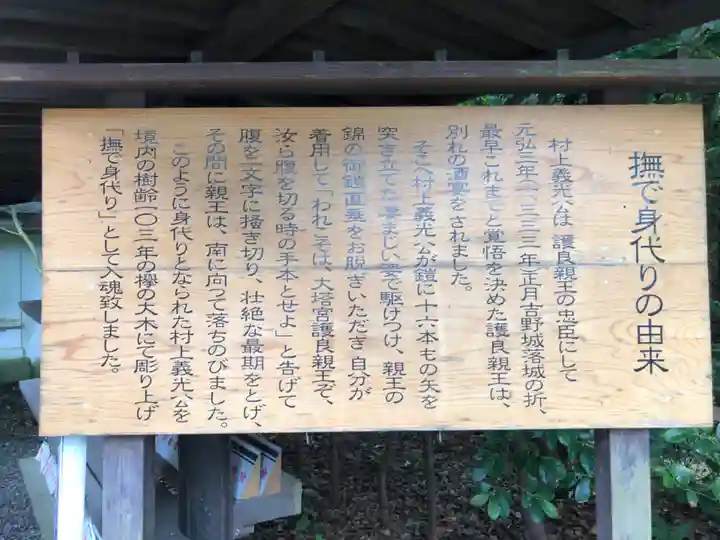 撫で身代りの由来
村上義光公は 護良親王の忠臣にして
元弘三年(一三三三年)正月吉野城落城の折、
最早これまでと覚悟を決めた護良親王は、
別れの酒宴をされました。
そこへ村上義光公が鎧に十六本もの矢を
突き立てた凄まじい姿で駆けつけ、親王の
錦の御鎧直垂をお脱ぎいただき 自分が
着用して「われこそは、大塔宮護良親王ぞ、
汝ら腹を切る時の手本とせよ」と告げて
腹を一文字に掻き切り、壮絶な最期をとげ、
その間に親王は、南に向って落ちのびました。
このように身代りとなられた村上義光公を
境内の樹齢一〇三年の欅の大木にて彫り上げ
「撫で身代り」として入魂致しました。